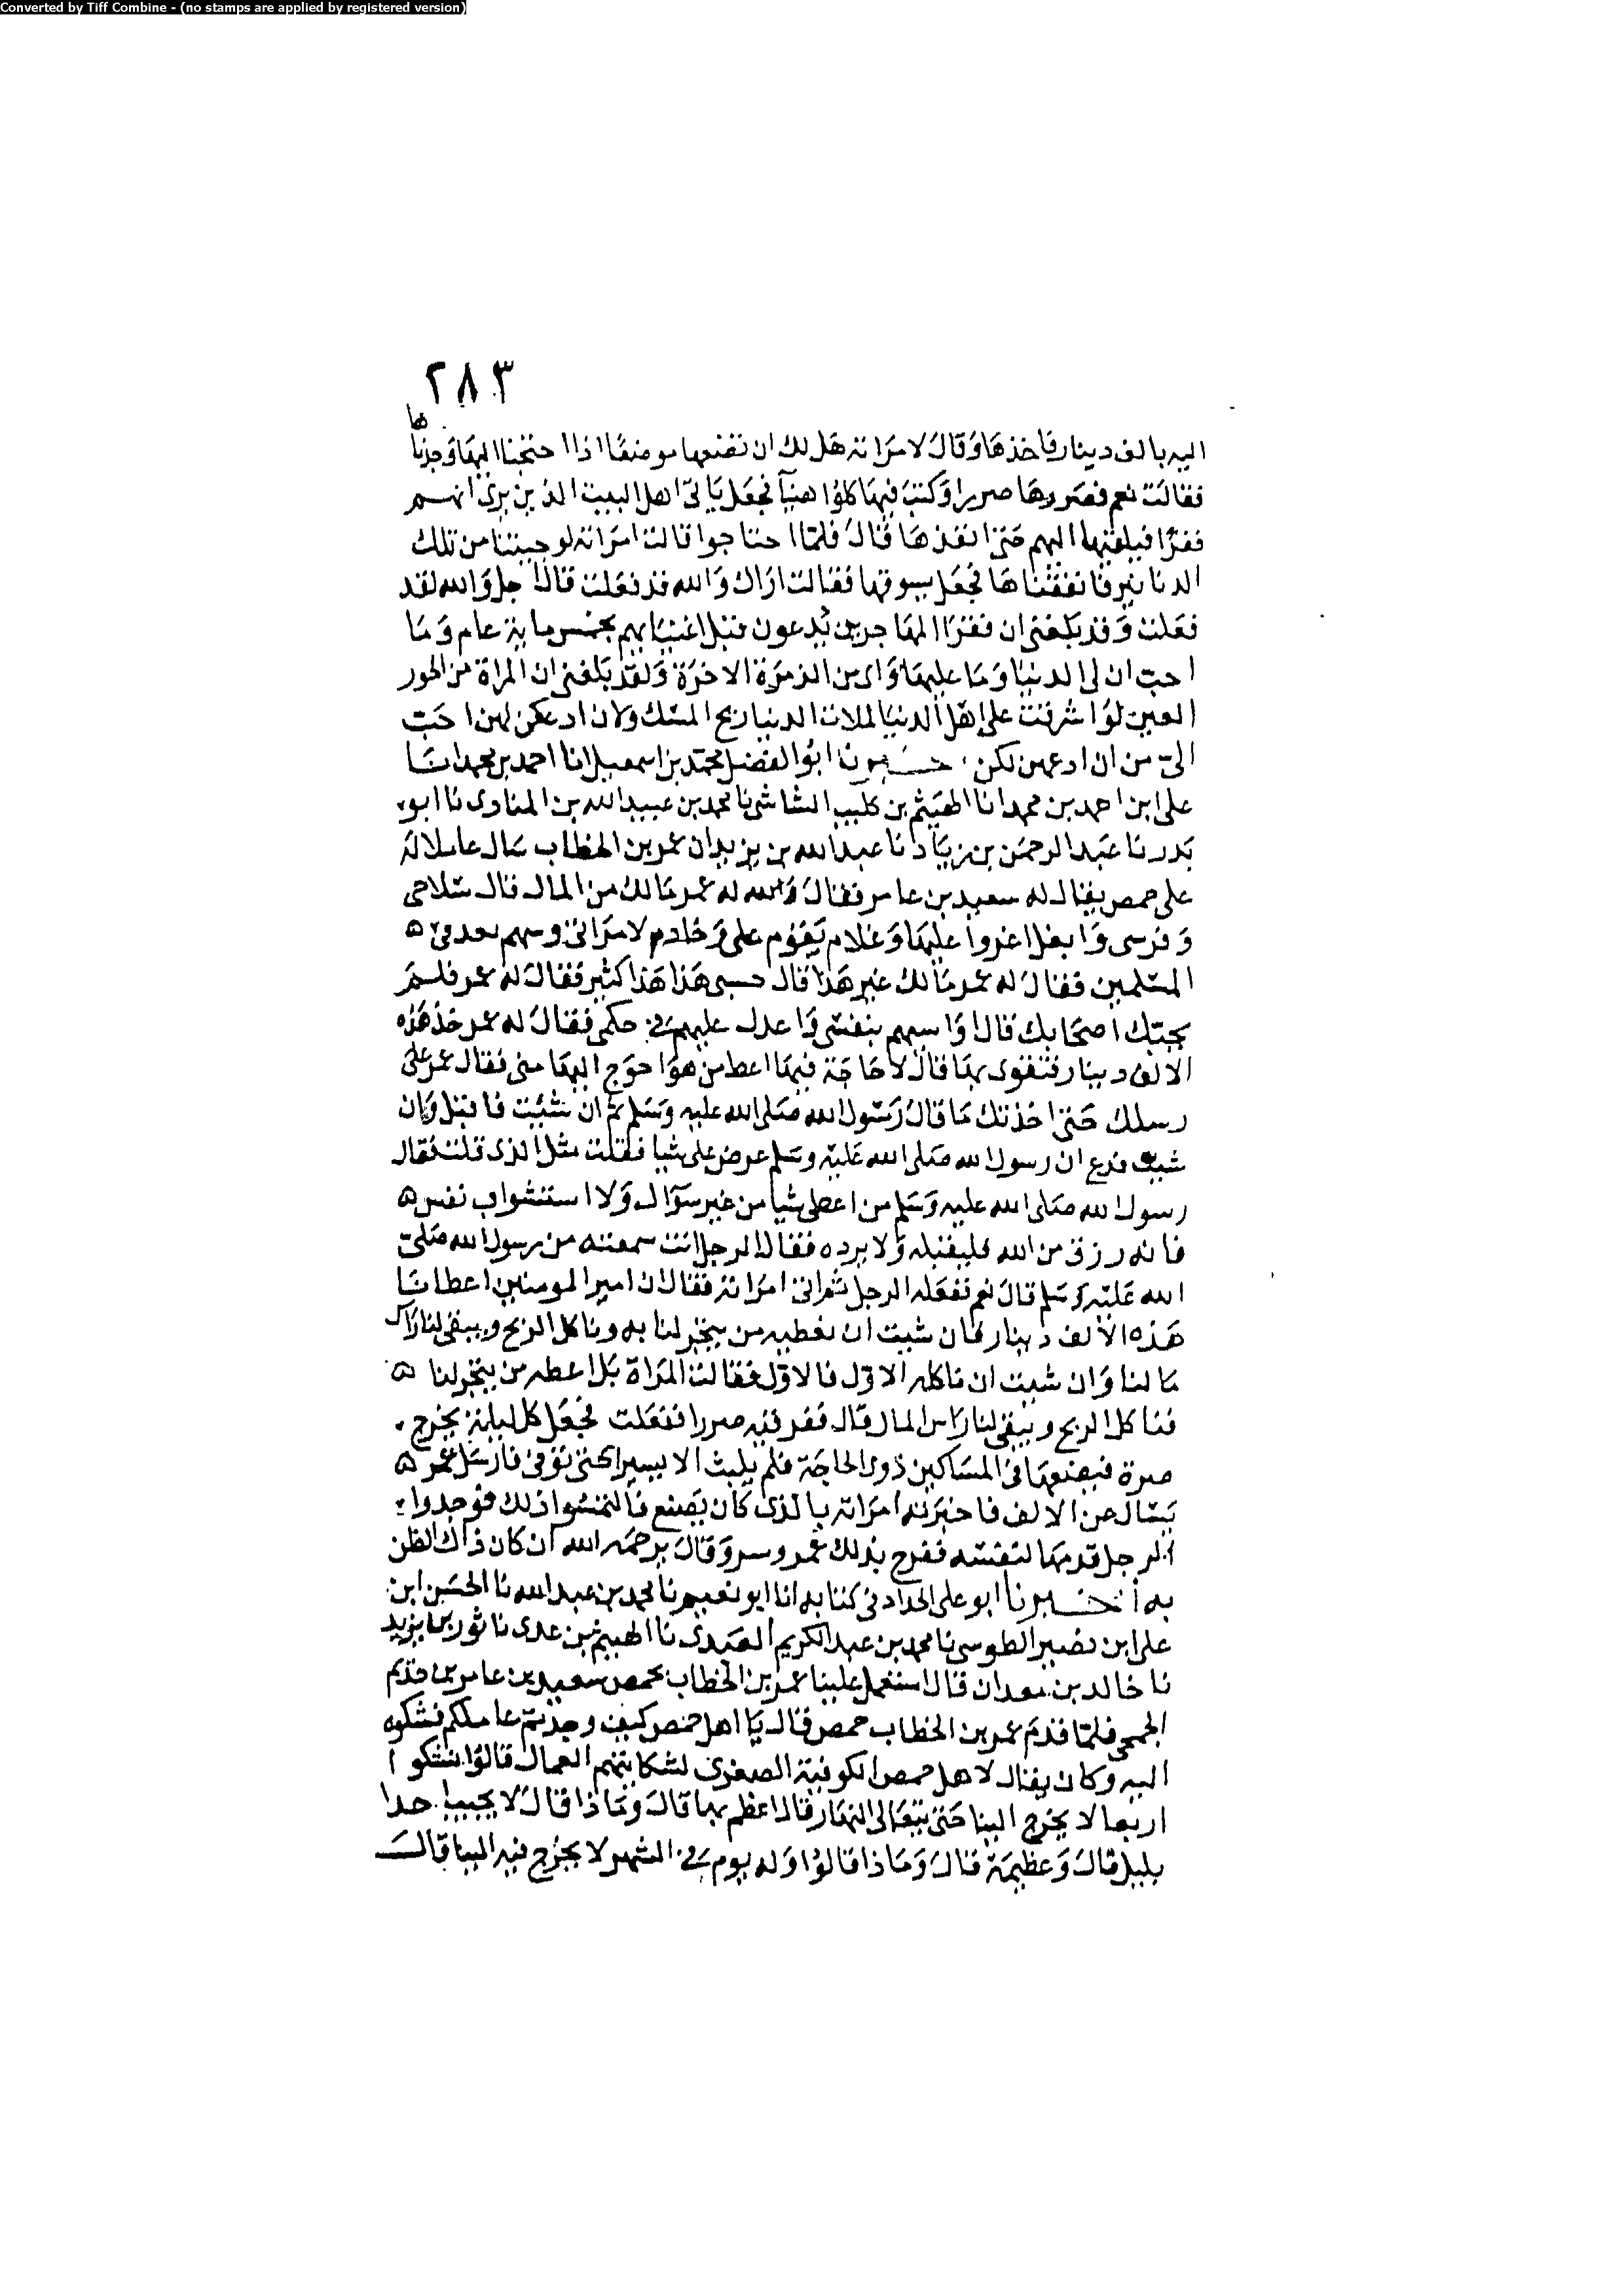 Converted by Tiff Combine - (no stamps are applied by registered version)
٢٨٣
اليه بالف دينار فاخذها وقال لامراته هل لك ان نضعها موضعا اذا احتجنا اليها وجدناها
فقالت نعم فصررها صررا وكتب فيها كلوا هنيا فجعل ياتى اهل البيت الذين يرى انهم
فقرا فيلقيها اليهم حتى انفذها قال فلما احتاجوا قالت امراته لو جيتنا من تلك
الدنانير فانفقناها فجعل يسوقها فقالت اراك والله قد فعلت قال اجل والله لقد
فعلت وقد بلغنى ان فقرا المهاجرين يدعون قبل اغنيايهم بخمس ماية عام وما
احب ان لى الدنيا وما عليها واى من الزمرة الاخرة ولقد بلغنى ان المراة من الحور
العين لو اشرفت على اهل الدنيا لملات الدنيا ريح المسك ولان ادعكن لهن احب
الى من ان ادعهن لكن ابو الفضل محمد بن اسمعيل انا احمد بن محمد انا
على ابن احمد بن محمد انا الهيثم بن كليب الشاشى نا محمد بن عبيد الله بن المنادى نا ابو
بدر نا عبد الرحمن بن زياد نا عبد الله بن يزيد ان عمر بن الخطاب سال عاملا له
على حمص يقال له سعيد بن عامر فقال له عمر مالك من المال قال سلاحى
وفرسى وابغل اغزوا عليها وغلام يقوم على وخادم لامراتى وسهم بعد فى ه
المسلمين فقال له عمر مالك غير هذا قال حسبى هذا هذا كثير فقال له عمر فلم
يحبك اصحابك قال اواسيهم بنفسى واعدل عليهم فى حكمى فقال له عمر خذ هذه
الالف دينار فتقوى بها قال لا حاجة فيها اعط من هو احوج اليها منى فقال عمر على
رسلك حتى احدثك ما قال رسول الله صلى الله عليه وسلم ثم ان شيت فاقبل وان
شيت فدع ان رسول الله صلى الله عليه وسلم عرض على شيا فقلت مثل الذى قلت فقال
رسول الله صلى الله عليه وسلم من اعطى شيا من غير سؤال ولا استشواف نفس ه
فانه رزق من الله فليقبله ولا يرده فقال الرجل انت سمعته من رسول الله صلى
الله عليه وسلم قال نعم فقبله الرجل ثم اتى امراته فقال ان امير المومنين اعطانا
هذه الالف دينار فان شيت ان نعطيه من يتجر لنا به وناكل الربح ويبقى لنا راس
مالنا وان شيت ان ناكله الاول فالاول فقالت المراة بل اعطه من يتجر لنا ه
فناكل الربح ويبقى لنا راس المال قال ففرقيه صررا ففعلت فجعل كل ليلة يخرج
صرة فيضعها فى المساكين ذوى الحاجة فلم يلبث الا يسيرا حتى توفى فارسل عمر ه
يسال عن الالف فاخبرته امراته بالذى كان يصنع فالتمسوا ذلك فوجدوا
الرجل قدمها لنفسه ففرح بذلك عمر وسر وقال يرحمه الله ان كان ذاك الظن
به اخبرنا ابو على الحداد فى كتابه انا ابو نعيم نا محمد بن عبد الله نا الحسن ابن
على ابن نصير الطوسى نا محمد بن عبد الكريم العبدى نا الهيثم بن عدى نا ثور بن يزيد
نا خالد بن معدان قال استعمل علينا عمر بن الخطاب بحمص سعيد بن عامر بن حذيم
الجمحى فلما قدم عمر بن الخطاب حمص قال يا اهل حمص كيف وجدتم عاملكم فشكوه
اليه وكان يقال لاهل حمص الكوفية الصغرى لشكايتهم العمال قالوا نشكوا
اربعا لا يخرج الينا حتى يتعالى النهار قال اعظم بها قال وماذا قال لا يجيب احدا
بليل قال وعظيمة قال وماذا قالوا وله يوم فى الشهر لا يخرج فيه الينا قال